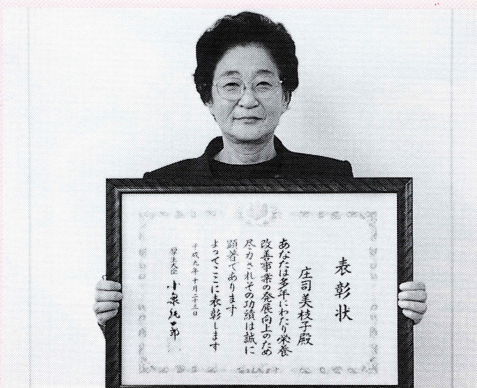 表彰状
庄司美枝子殿
あなたは多年にわたり栄養
改善事業の発展向上のため
尽力されその功績は誠に
顕著であります
よってここに表彰します
平成九年十月二十二日
厚生大臣 小泉純一郎